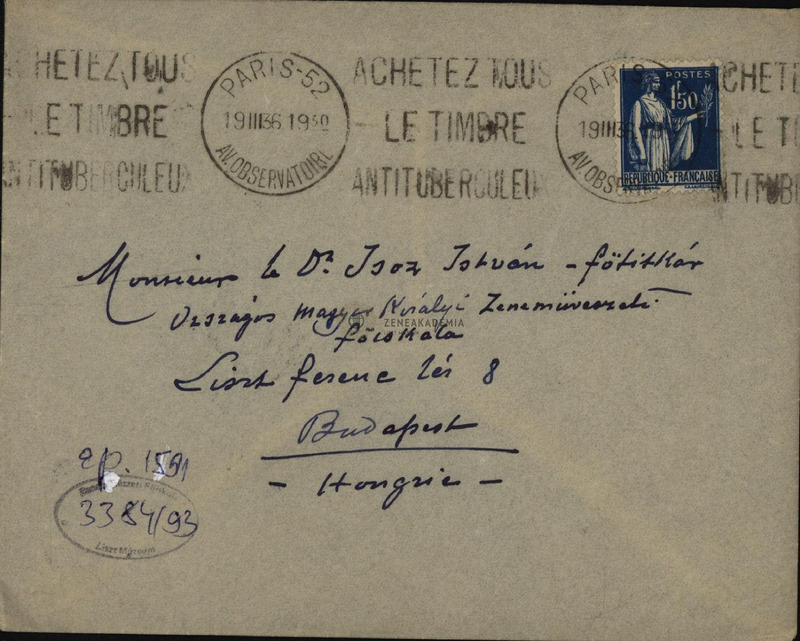 ACHETEZ TOUS
LE TIMBRE
ANTITUBERCULEUX
PARIS-52
19 III 36 19 30
AV. OBSERVATOIRE
ACHETEZ TOUS
LE TIMBRE
ANTITUBERCULEUX
PARIS
19 III 36
AV. OBS
POSTES
1F50
REPUBLIQUE-FRANÇAISE
ACHETE
LE TI
ANTITUBE
Monsieur le Dr Isoz István - főtitkár
Országos Magyar Királyi Zeneművészeti
ZENEAKADÉMIA
főiskola
Liszt ferenc tér 8
Budapest
- Hongrie -
ep. 1591
3384/93
Liszt Múzeum